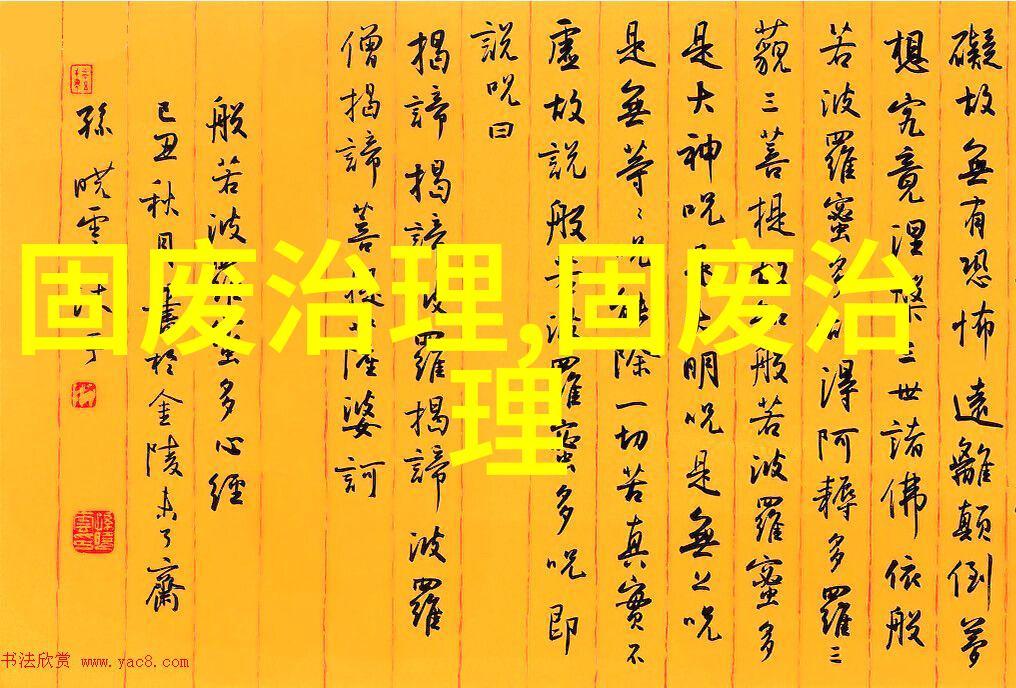 固废治理,固废治
理
礙故無有恐怖遠離顛倒夢
想究竟涅槃三世諸佛依般
若波羅蜜多故得阿耨多羅三
藐三菩提故知般若波羅蜜多
是大神咒是大明咒是無上咒
是無等〻咒能除一切苦真實不
虛故說般若波羅蜜多咒即
說咒曰
揭諦揭諦波羅揭諦波羅
僧揭諦菩提薩婆訶
般若波羅蜜多心經
己丑秋月書於金陵未了齋
孫曉雲沐手
书法欣赏 www.yac8.com